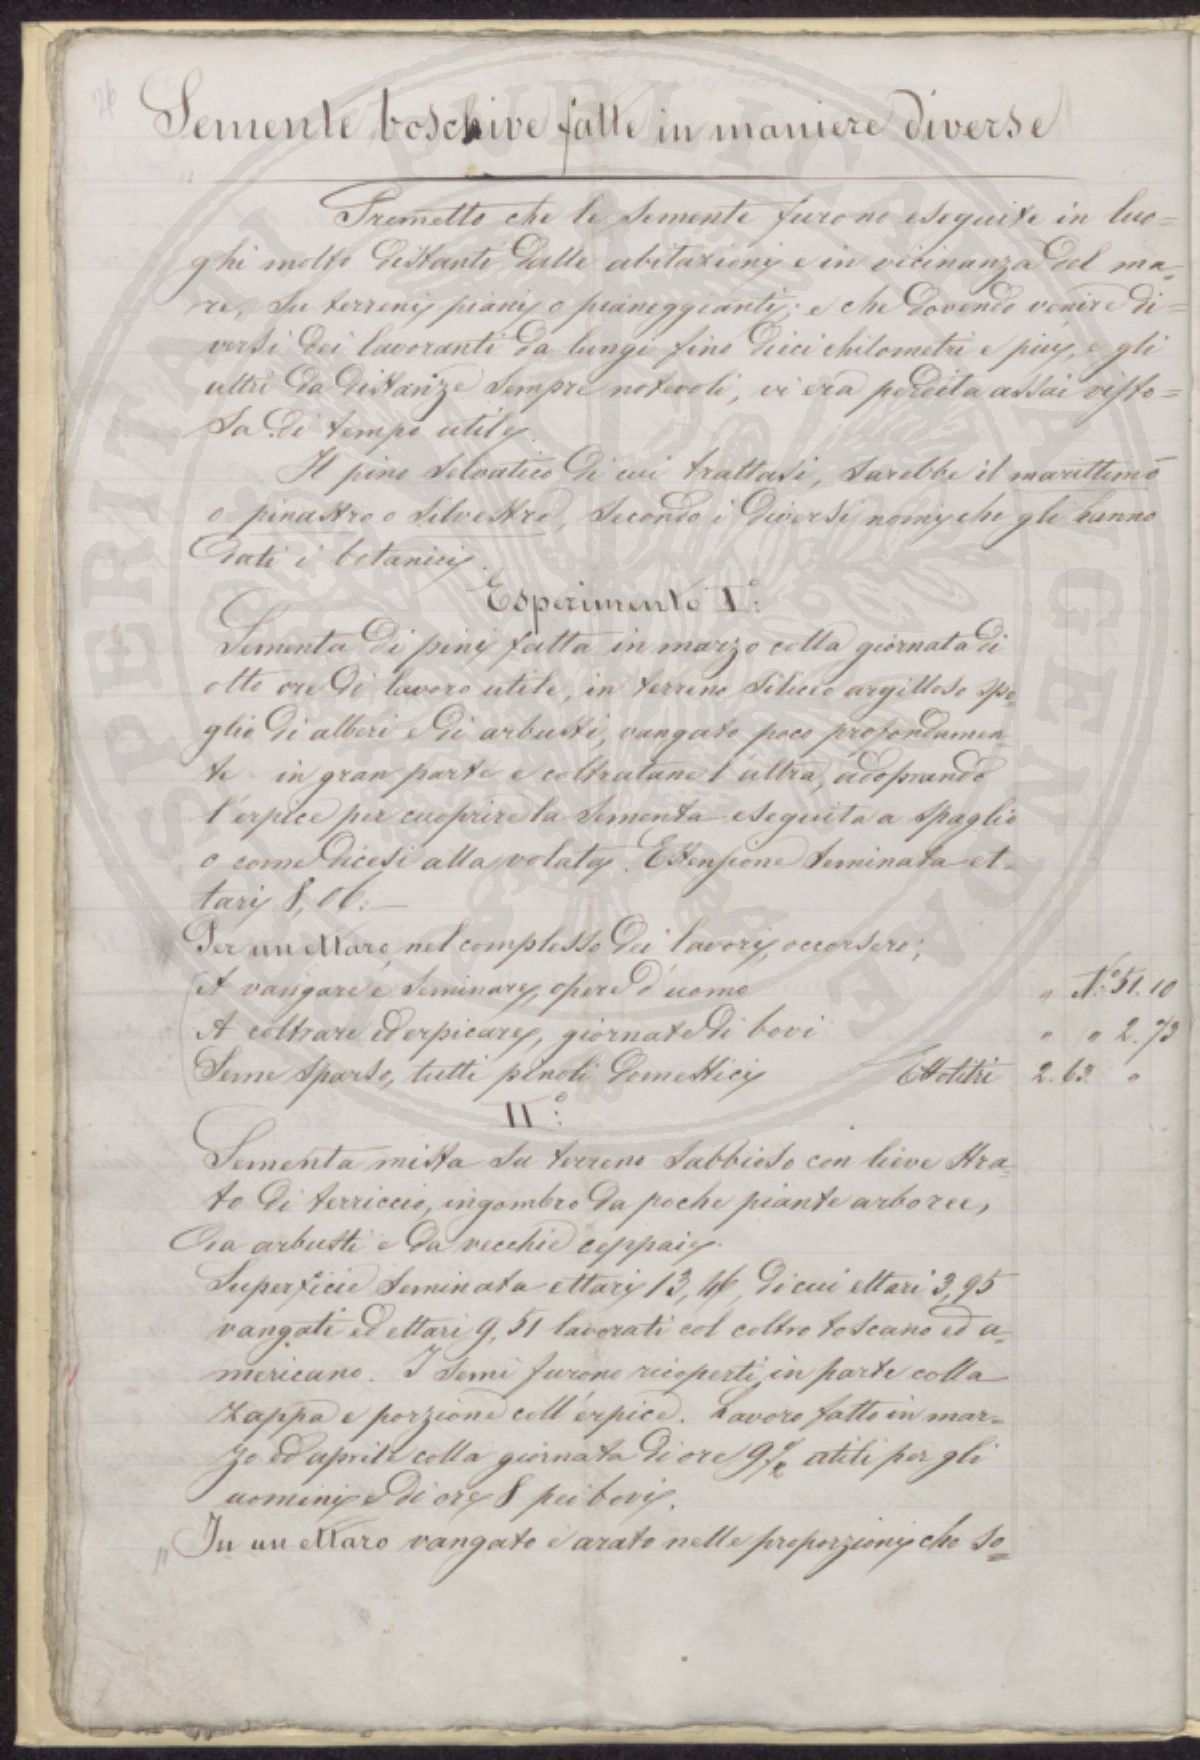 Semente boschive fatte in maniere diverse
Premetto che le semente furono eseguite in luo=
ghi molto distanti dalle abitazioni e in vicinanza del ma=
re, su terreni piani o pianeggianti; e che dovendo venire di=
versi dei lavoranti da lungi fino dieci chilometri e più, e gli
altri da distanze sempre notevoli, vi era perdita assai visto=
sa di tempo utile.
Il pino selvatico di cui trattasi, sarebbe il marittimo
o pinastro o silvestre, secondo i diversi nomi che gli hanno
dati i botanici.
Esperimento I.º:
Sementa di pini fatta in marzo colla giornata di
otto ore di lavoro utile, in terreno siliceo argilloso spo=
glio di alberi e di arbusti, vangato poco profondamen=
te in gran parte e coltratane l'altra, adoprando
l'erpice per cuoprire la sementa eseguita a spaglio
o come dicesi alla volata. Estensione seminata et=
tari 8,06:—
Per un ettaro, nel complesso dei lavori, occorsero;
A vangare e seminare, opere d'uomo " Nº 51.10
A coltrare ed erpicare, giornate di bovi " " 2.73
Seme sparso, tutti pinoli domestici Ettolitri 2.63 "
II.º:
Sementa mista su terreno sabbioso con lieve stra=
to di terriccio, ingombro da poche piante arboree,
da arbusti e da vecchie ceppaie.
Superficie seminata ettari 13,46, di cui ettari 3,95
vangati ed ettari 9,51 lavorati col coltro toscano ed a=
mericano. I semi furono ricoperti in parte colla
zappa e porzione coll'erpice. Lavoro fatto in mar=
zo ed aprile colla giornata di ore 9½ utili per gli
uomini e di ore 8 pei bovi.
" In un ettaro vangato e arato nelle proporzioni che so=
PERITAT PVBLICAE AVGENDAE PROSPERITATI